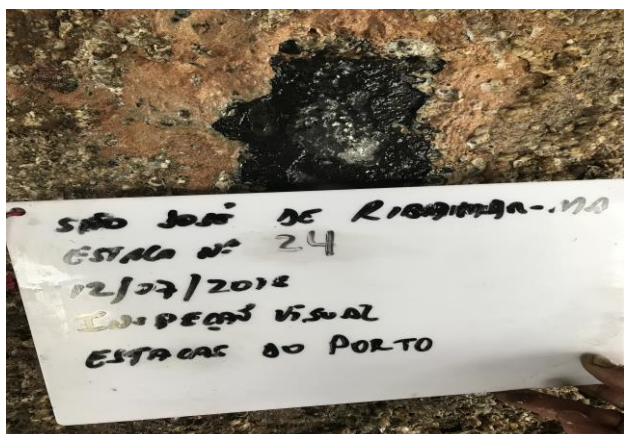 SÃO JOSÉ DE RIBAMAR-MA
ESTACA Nº 24
12/07/2018
INSPEÇAÕ VISUAL
ESTACAS DO PORTO